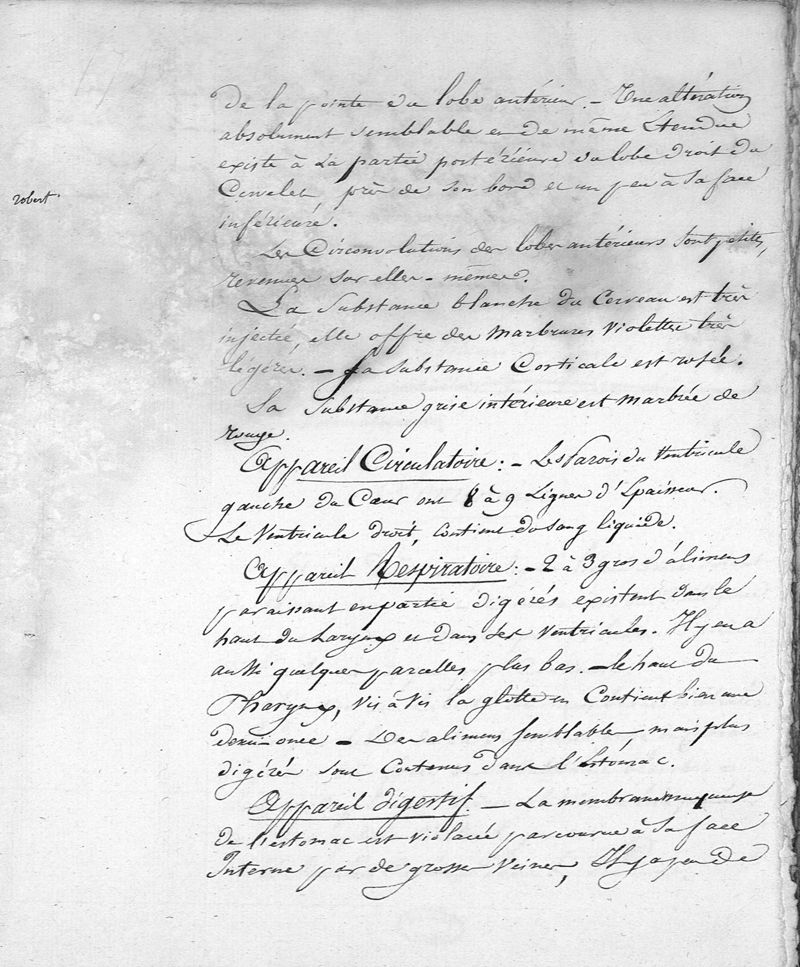 de la pointe du lobe antérieur. - Une altération
absolument semblable et de même étendue
existe à la partie postérieure du lobe droit du
Cervelet, près de son bord et un peu à sa face
robert
inférieure.
Les Circonvolutions des lobes antérieurs sont petites,
revenues sur elles-mêmes.
La Substance blanche du Cerveau est très
injectée, elle offre des Marbrures violettes très
légères. - La substance Corticale est rosée.
La Substance grise intérieure est marbrée de
rouge.
Appareil Circulatoire: - Les Parois du Ventricule
gauche du Cœur ont 8 à 9 Lignes d'Epaisseur.
Le Ventricule droit, contient du sang liquide.
Appareil Respiratoire: - 2 à 3 gros d'alimens
paraissant en partie digérés existent dans le
haut du Larynx et dans ses ventricules. Il y en a
aussi quelques parcelles plus bas. - le haut du
Pharynx, vis à vis la glotte en Contient bien une
demi-once - Des alimens semblables mais plus
digérés sont Contenus dans l'Estomac.
Appareil digestif. - La membrane muqueuse
de l'estomac est violacée parcourue à sa face
Interne par de grosses Veines, Il y a peu de